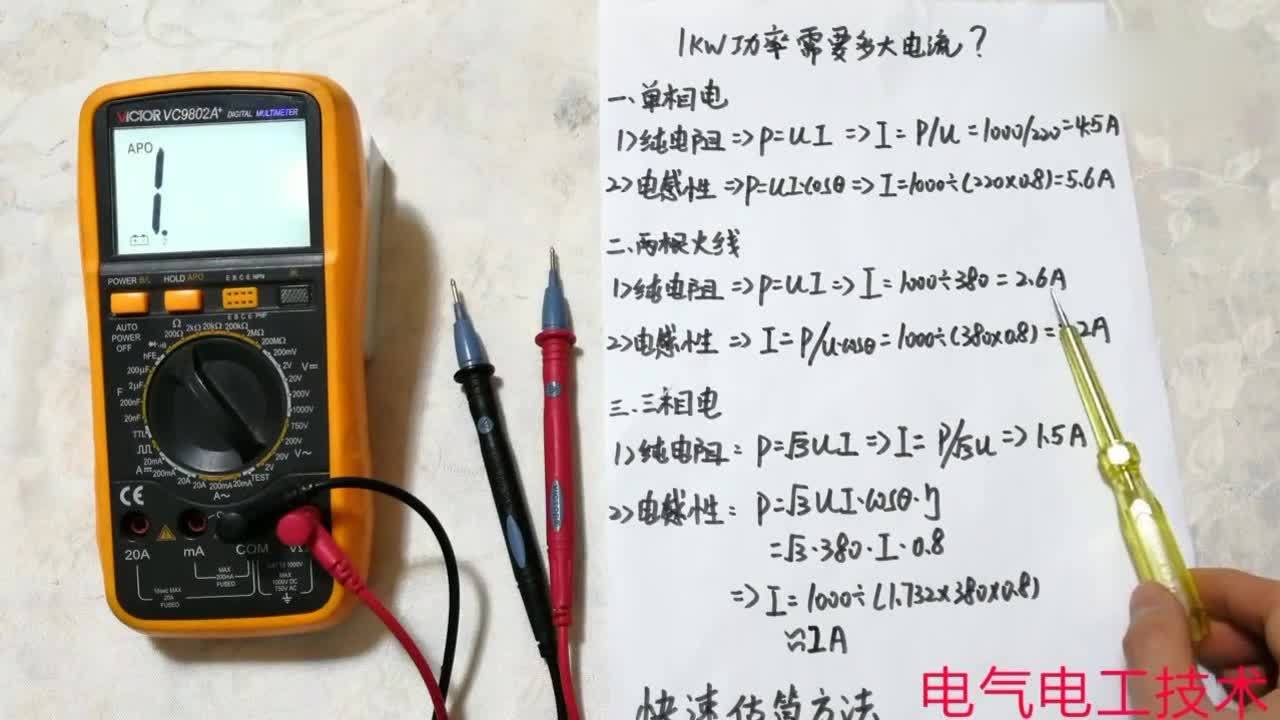 VICTOR VC9802A+ DIGITAL MULTIMETER
APO
1.
POWER B/L HOLD APO E B C E NPN
E B C E PNP
AUTO
POWER
OFF
Ω
200Ω 2kΩ 20kΩ 200kΩ
2MΩ
200MΩ
hFE
200mV
200μF
2V
V=
2μF
20V
F
200nF
200V
20nF
1000V
TTL
750V
200V
V~
20V
20mA
2V
A=
200mA
TEST
20A
20A
200mA
20mA
A~
CE
20A mA COM VΩ
MAX
200mA
FUSED
MAX
1000V DC
750V AC
15sec MAX
20A
FUSED
1KW功率需要多大电流?
一.单相电
1>纯电阻=>P=UI=>I=P/U=1000/220=4.5A
2>电感性=>P=UI·cosθ=>I=1000÷(220×0.8)=5.6A
二.两根火线
1>纯电阻=>P=UI=>I=1000÷380=2.6A
2>电感性=>I=P/U·cosθ=1000÷(380×0.8)= 2A
三.三相电
1>纯电阻:P=√3UI=>I=P/√3U=>1.5A
2>电感性:P=√3UI·cosθ·η
=√3·380·I·0.8
=>I=1000÷(1.732×380×0.8)
≈2A
快速估算方法
电气电工技术